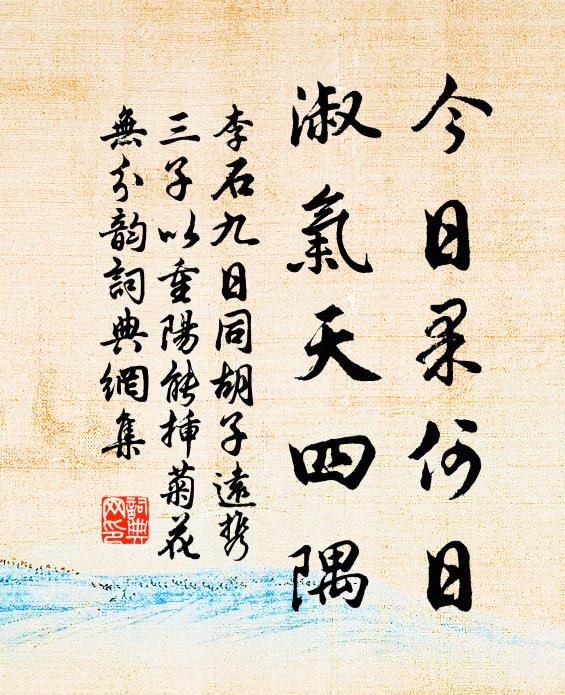 今日果何日
淑氣天四隅
李石九日同胡子遠携
三子以重陽能挿菊花
無分韵詞典網集
詞典
网印